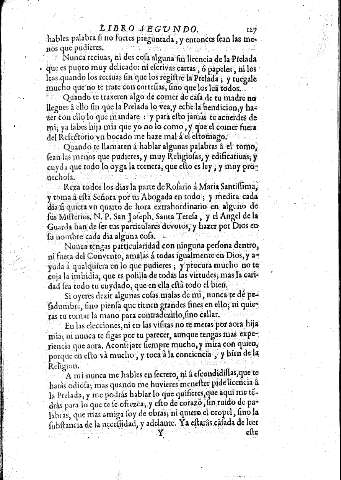 LIBRO SEGUNDO. 127
hables palabra si no fueres preguntada, y entonces sean las me-
nos que pudieres.
Nunca reciuas, ni des cosa alguna sin licencia de la Prelada
que es punto muy delicado: ni escriuas cartas, ò papeles, ni los
leas quando los reciuas sin que los registre la Prelada; y ruegale
mucho que no te trate con cortesias, sino que los lea todos.
Quando te traxeren algo de comer de casa de tu madre no
llegues à ello sin que la Prelada lo vea, y eche la bendicion, y ha-
zer con ello lo que mandare : y para esto jamàs te acuerdes de
mi; ya sabes hija mia que yo no lo como, y que el comer fuera
del Refectorio vn bocado me haze mal à el estomago.
Quando te llamaren à hablar algunas palabras à el torno,
sean las menos que pudieres, y muy Religiosas, y edificatiuas; y
cuyda que todo lo oyga la tornera, que esto es ley, y muy pro-
uechosa.
Reza todos los dias la parte de Rosario à Maria Santissima,
y toma à esta Señora por tu Abogada en todo; y medita cada
dia si quiera vn quarto de hora extraordinario en alguno de
sus Misterios. N. P. San Joseph, Santa Teresa, y el Angel de la
Guarda han de ser tus particulares deuotos, y hazer por Dios en
su nombre cada dia alguna cosa.
Nunca tengas particularidad con ninguna persona dentro,
ni fuera del Convento, amalas à todas igualmente en Dios, y a-
yuda à qualquiera en lo que pudieres; y procura mucho no te
coja la imbidia, que es polilla de todas las virtudes; mas la cari-
dad sea todo tu cuydado, que en ella està todo el bien.
Si oyeres dezir algunas cosas malas de mi, nunca te dè pe-
sadumbre, sino piensa que tienen grandes fines en ello; ni quie-
ras tu tomar la mano para contradezirlo, sino callar.
En las elecciones, ni en las visitas no te metas por aora hija
mia; ni nunca te sigas por tu parecer, aunque tengas mas expe-
riencia que aora. Aconsejate siempre mucho, y mira con quien,
porque en esto và mucho, y toca à la conciencia, y bien de la
Religion.
A mi nunca me hables en secreto, ni à escondidillas, que te
haràs odiosa; mas quando me huvieres menester pide licencia à
la Prelada, y me podràs hablar lo que quisieres, que aqui me ten-
dràs para lo que te se ofrezca, y esto de coraçon, sin ruido de pa-
labras, que mas amiga soy de obras; ni quiero el oropel, sino la
substancia de la necessidad, y adelante. Ya estaràs cansada de leer
Y este